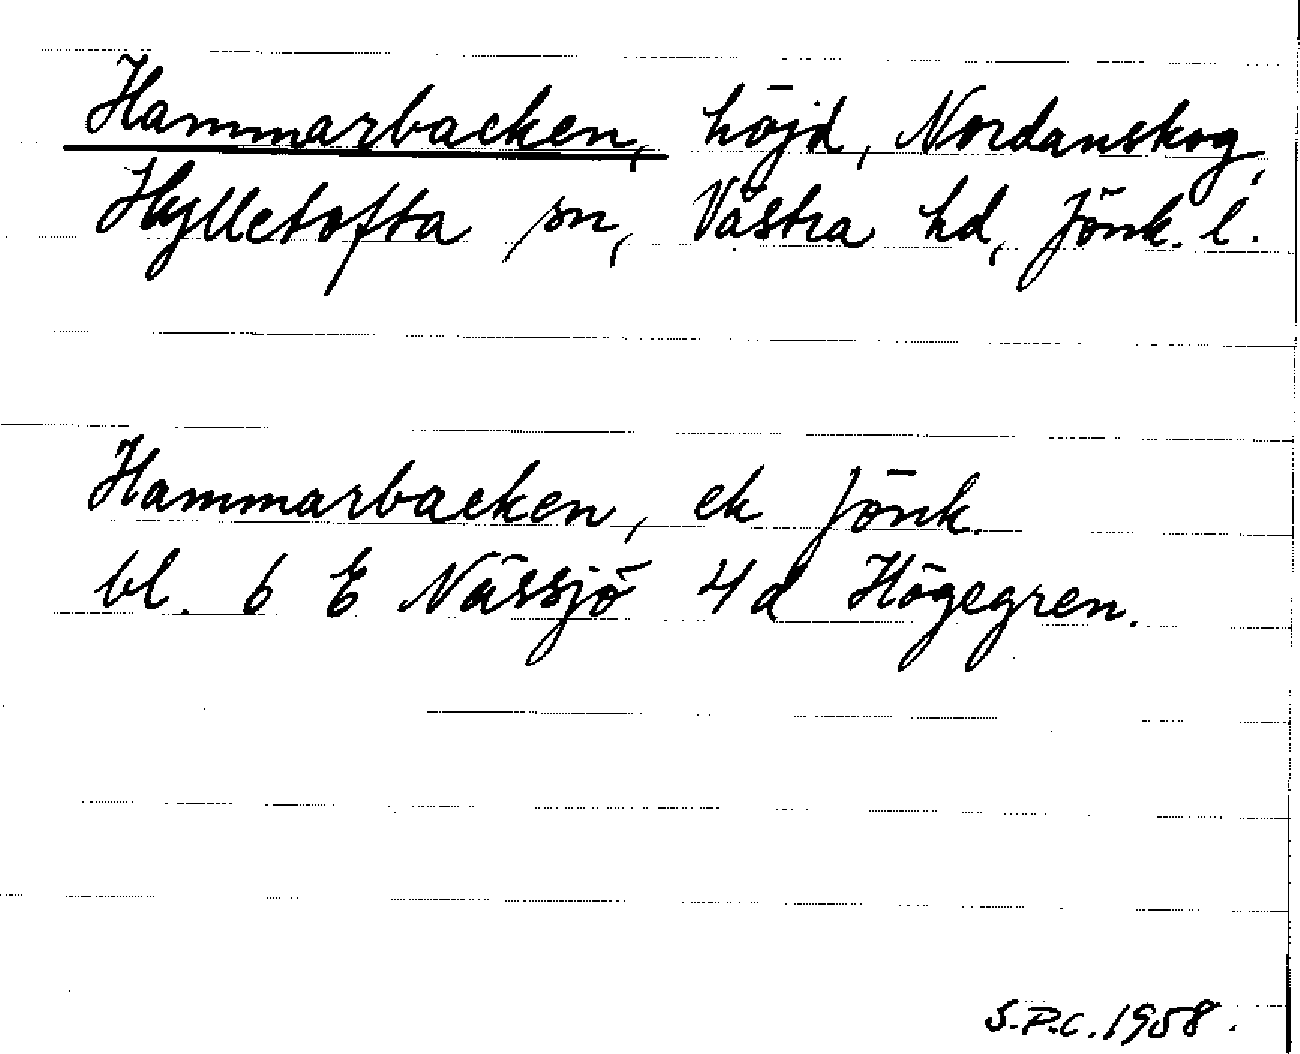 Hammarbacken, höjd, Nordanskog,
Hylletofta sn, Västra hd, Jönk. l.
Hammarbacken, ek Jönk.
bl. 6 E Nässjö 4 d Högegren.
S.P.C. 1958.